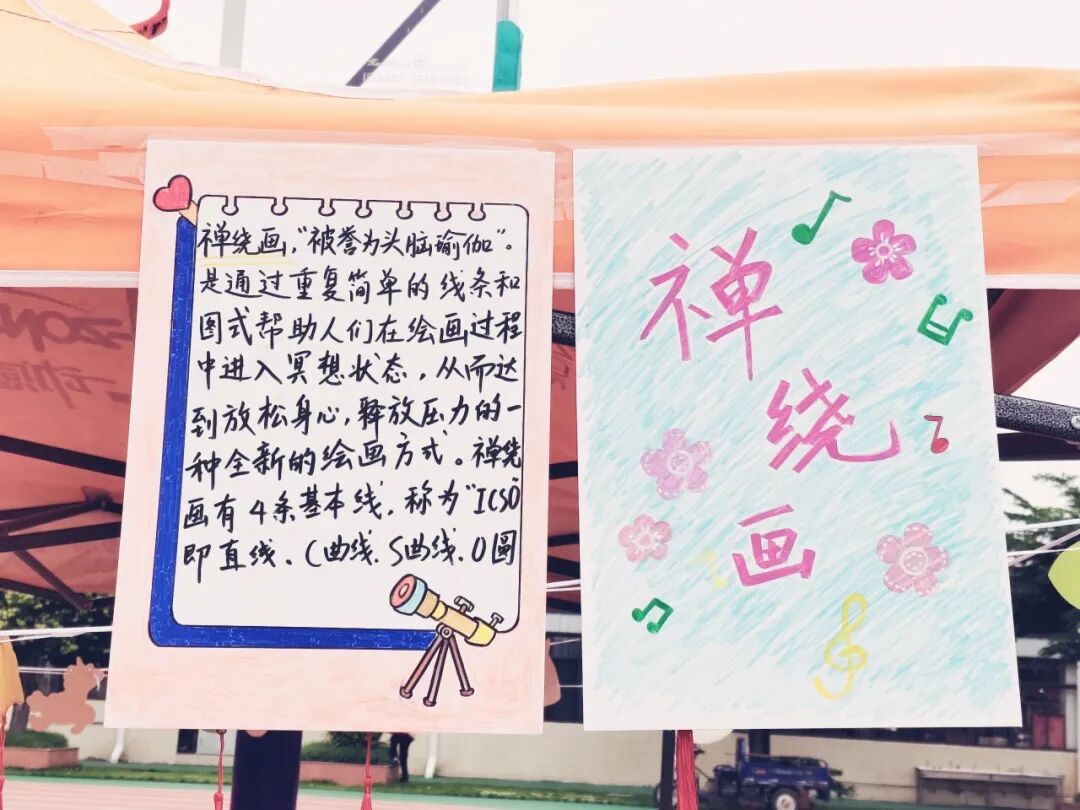 禅绕画,"被誉为头脑瑜伽"。
是通过重复简单的线条和
图式帮助人们在绘画过程
中进入冥想状态，从而达
到放松身心，释放压力的一
种全新的绘画方式。禅绕
画有4条基本线，称为"ICSO"
即直线、C曲线、S曲线、O圆
禅
绕
画